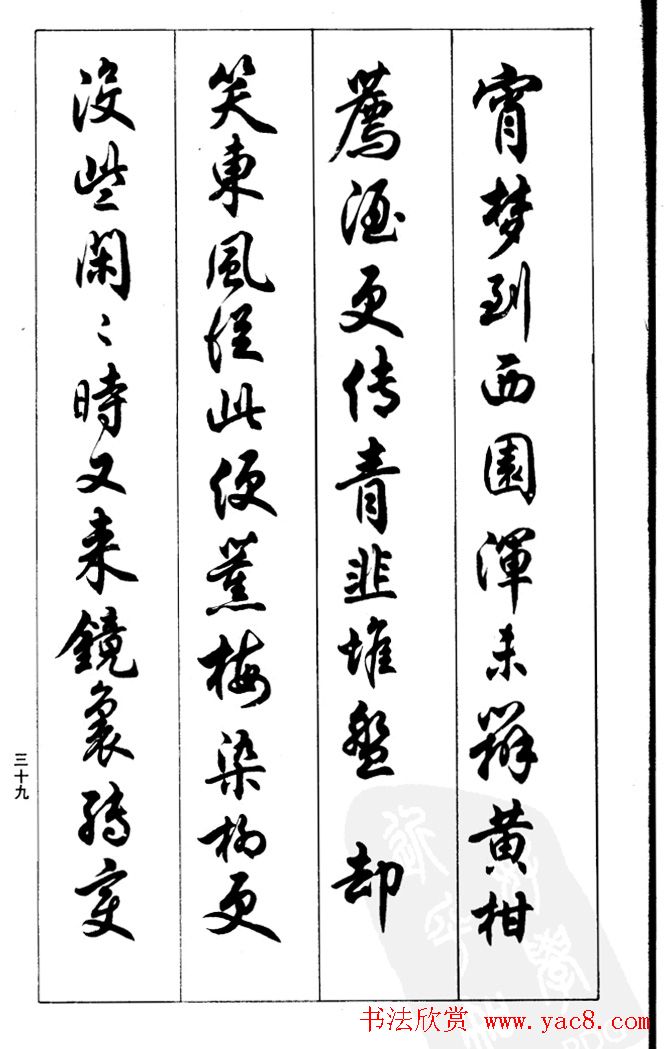 宵梦到西園渾未辦黄柑
薦酒更传青韭堆盤 却
笑東風從此便薰梅染柳更
沒些閑〻時又来鏡裏轉变
三十九
书法欣赏 www.yac8.com